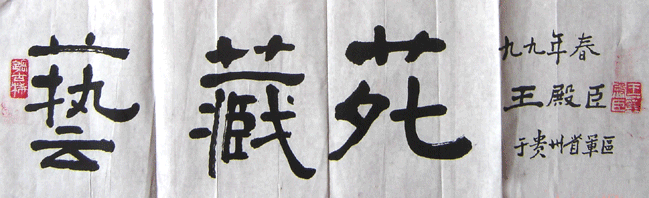 藝藏苑
九九年春
王殿臣
于貴州省軍區